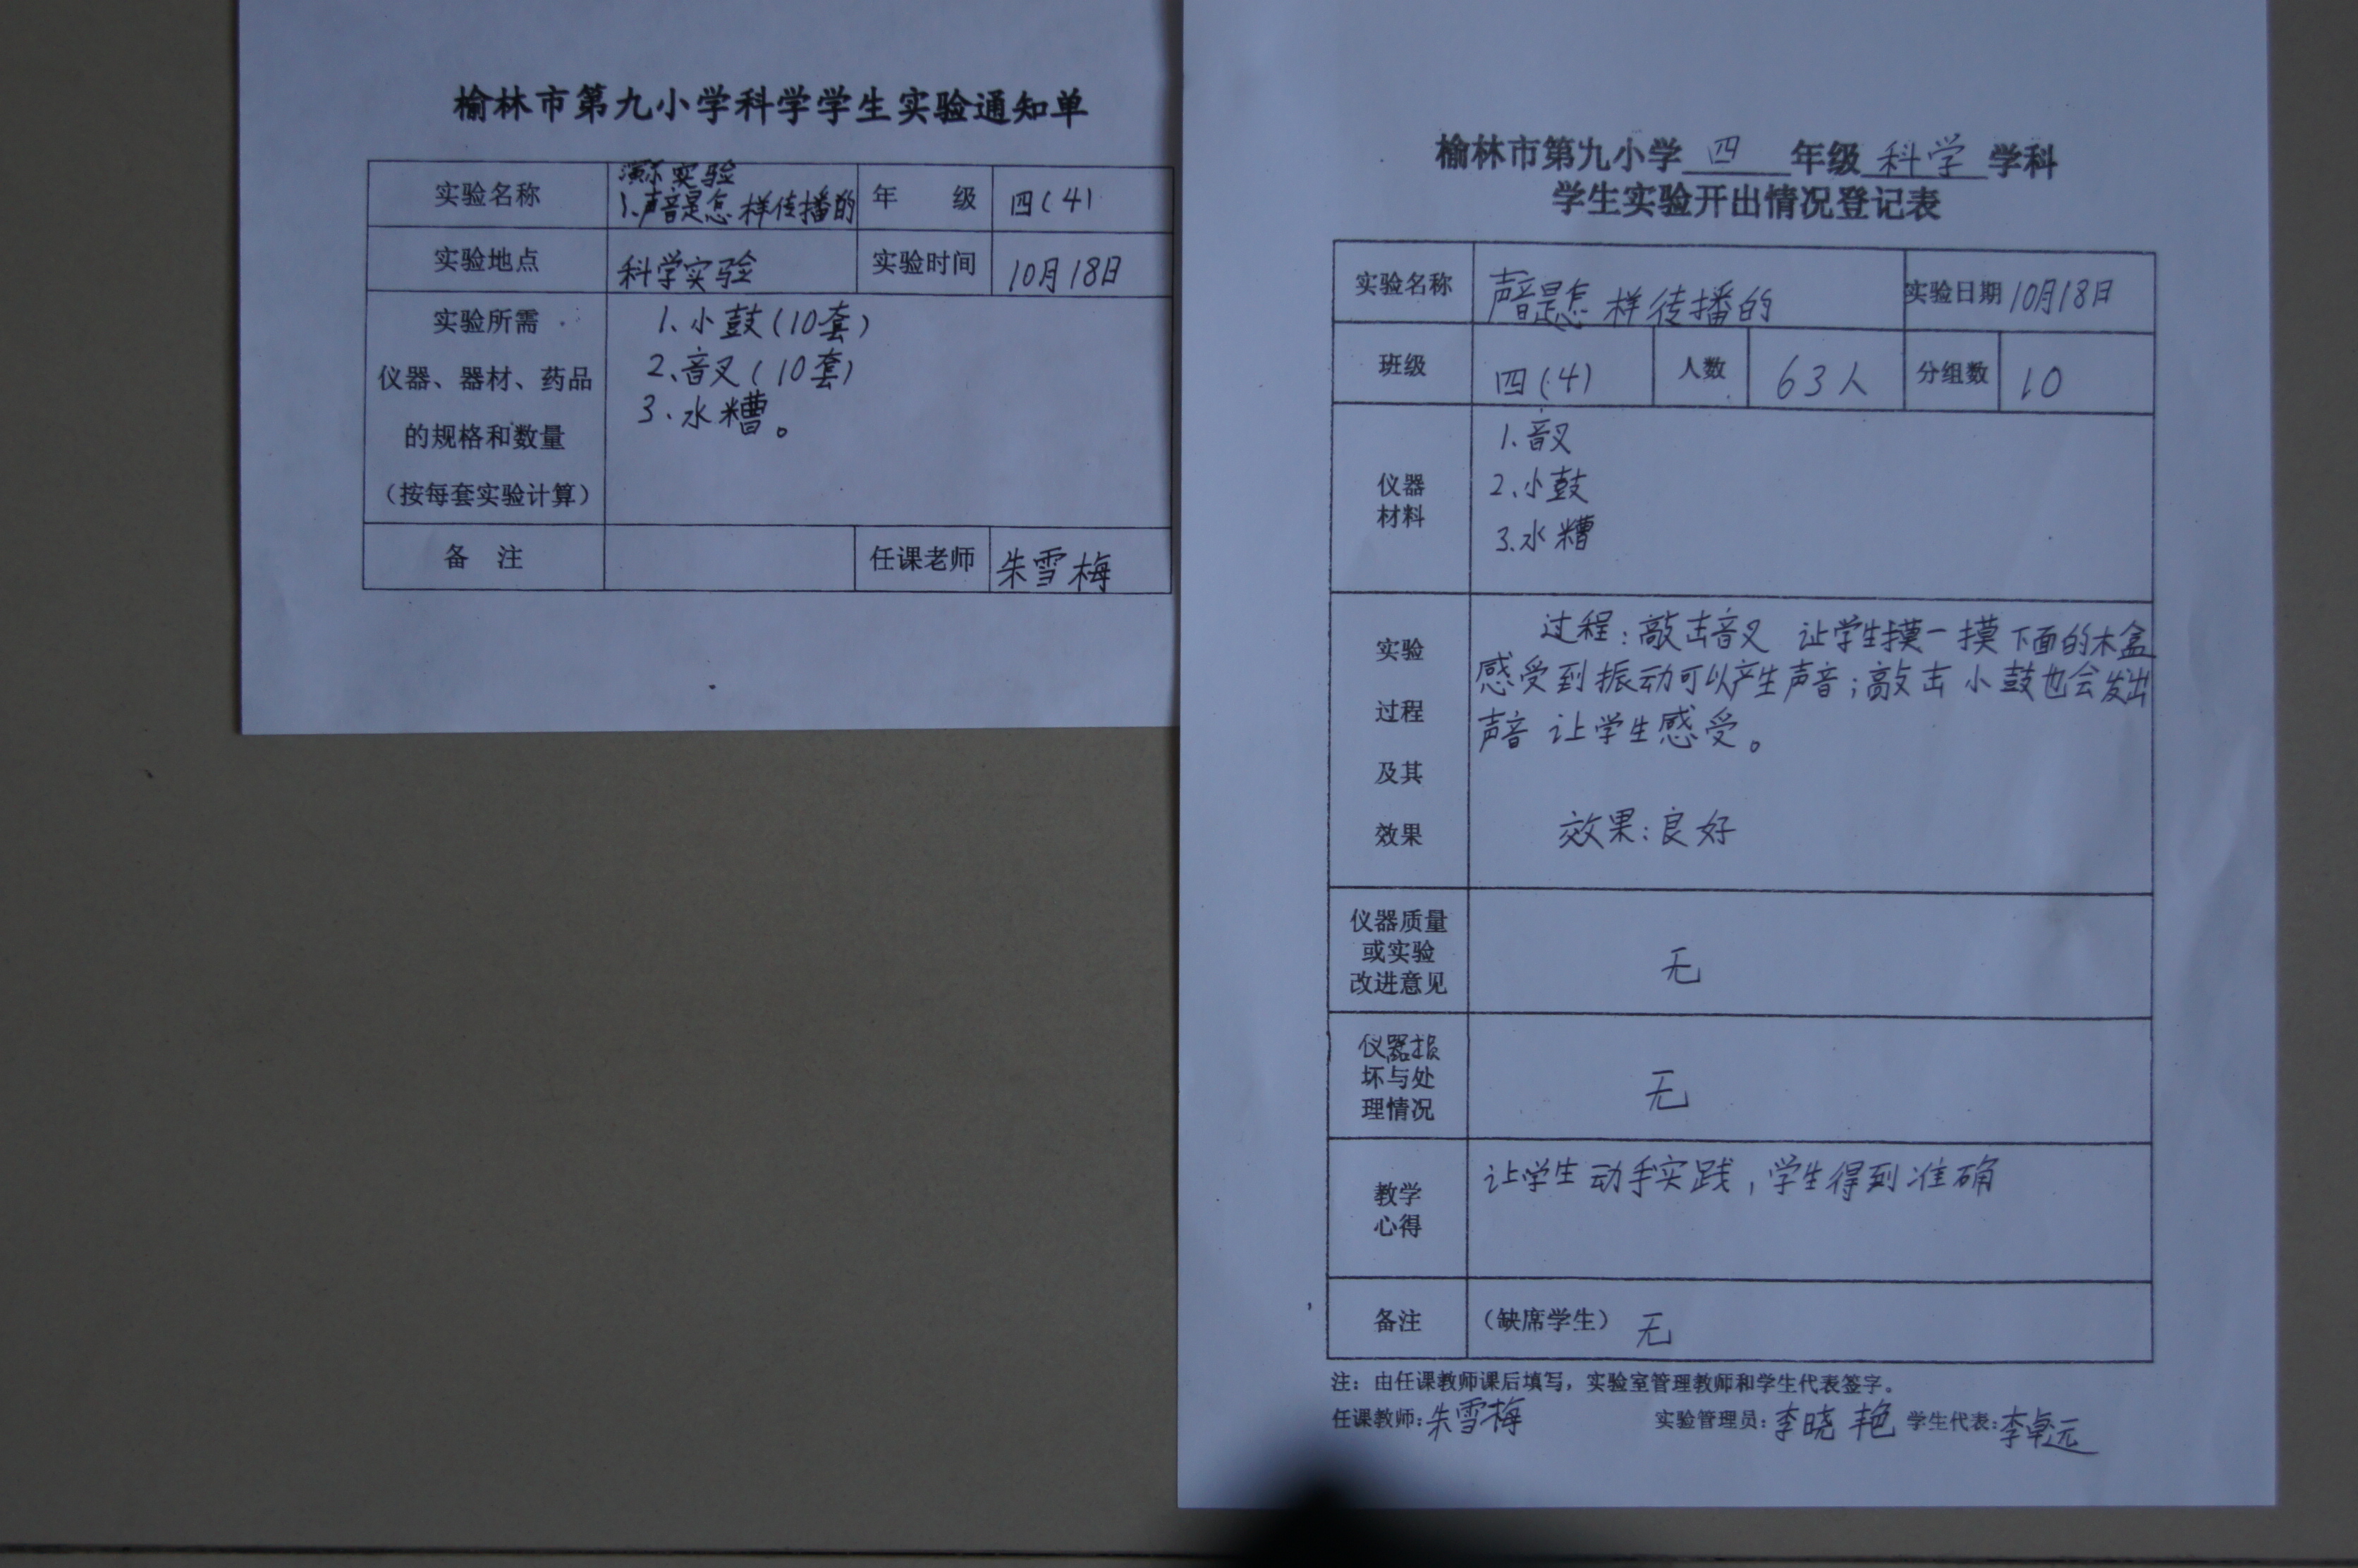 榆林市第九小学科学学生实验通知单
实验名称 演示实验 年 级 四(4)
1.声音是怎样传播的
实验地点 科学实验 实验时间 10月18日
实验所需 1、小鼓(10套)
仪器、器材、药品 2、音叉(10套)
的规格和数量 3、水糟。
(按每套实验计算)
备 注 任课老师 朱雪梅
榆林市第九小学 四 年级 科学 学科
学生实验开出情况登记表
实验名称 声音是怎样传播的 实验日期 10月18日
班级 四(4) 人数 63人 分组数 10
仪器
材料
1、音叉
2、小鼓
3.水糟
实验
过程
及其
效果
过程:敲击音叉 让学生摸一摸下面的木盒
感受到振动可以产生声音;敲击小鼓也会发出
声音 让学生感受。
效果:良好
仪器质量
或实验
改进意见
无
仪器损
坏与处
理情况
无
教学
心得
让学生动手实践,学生得到准确
备注 (缺席学生) 无
注:由任课教师课后填写,实验室管理教师和学生代表签字。
任课教师:朱雪梅 实验管理员:李晓艳 学生代表:李卓元